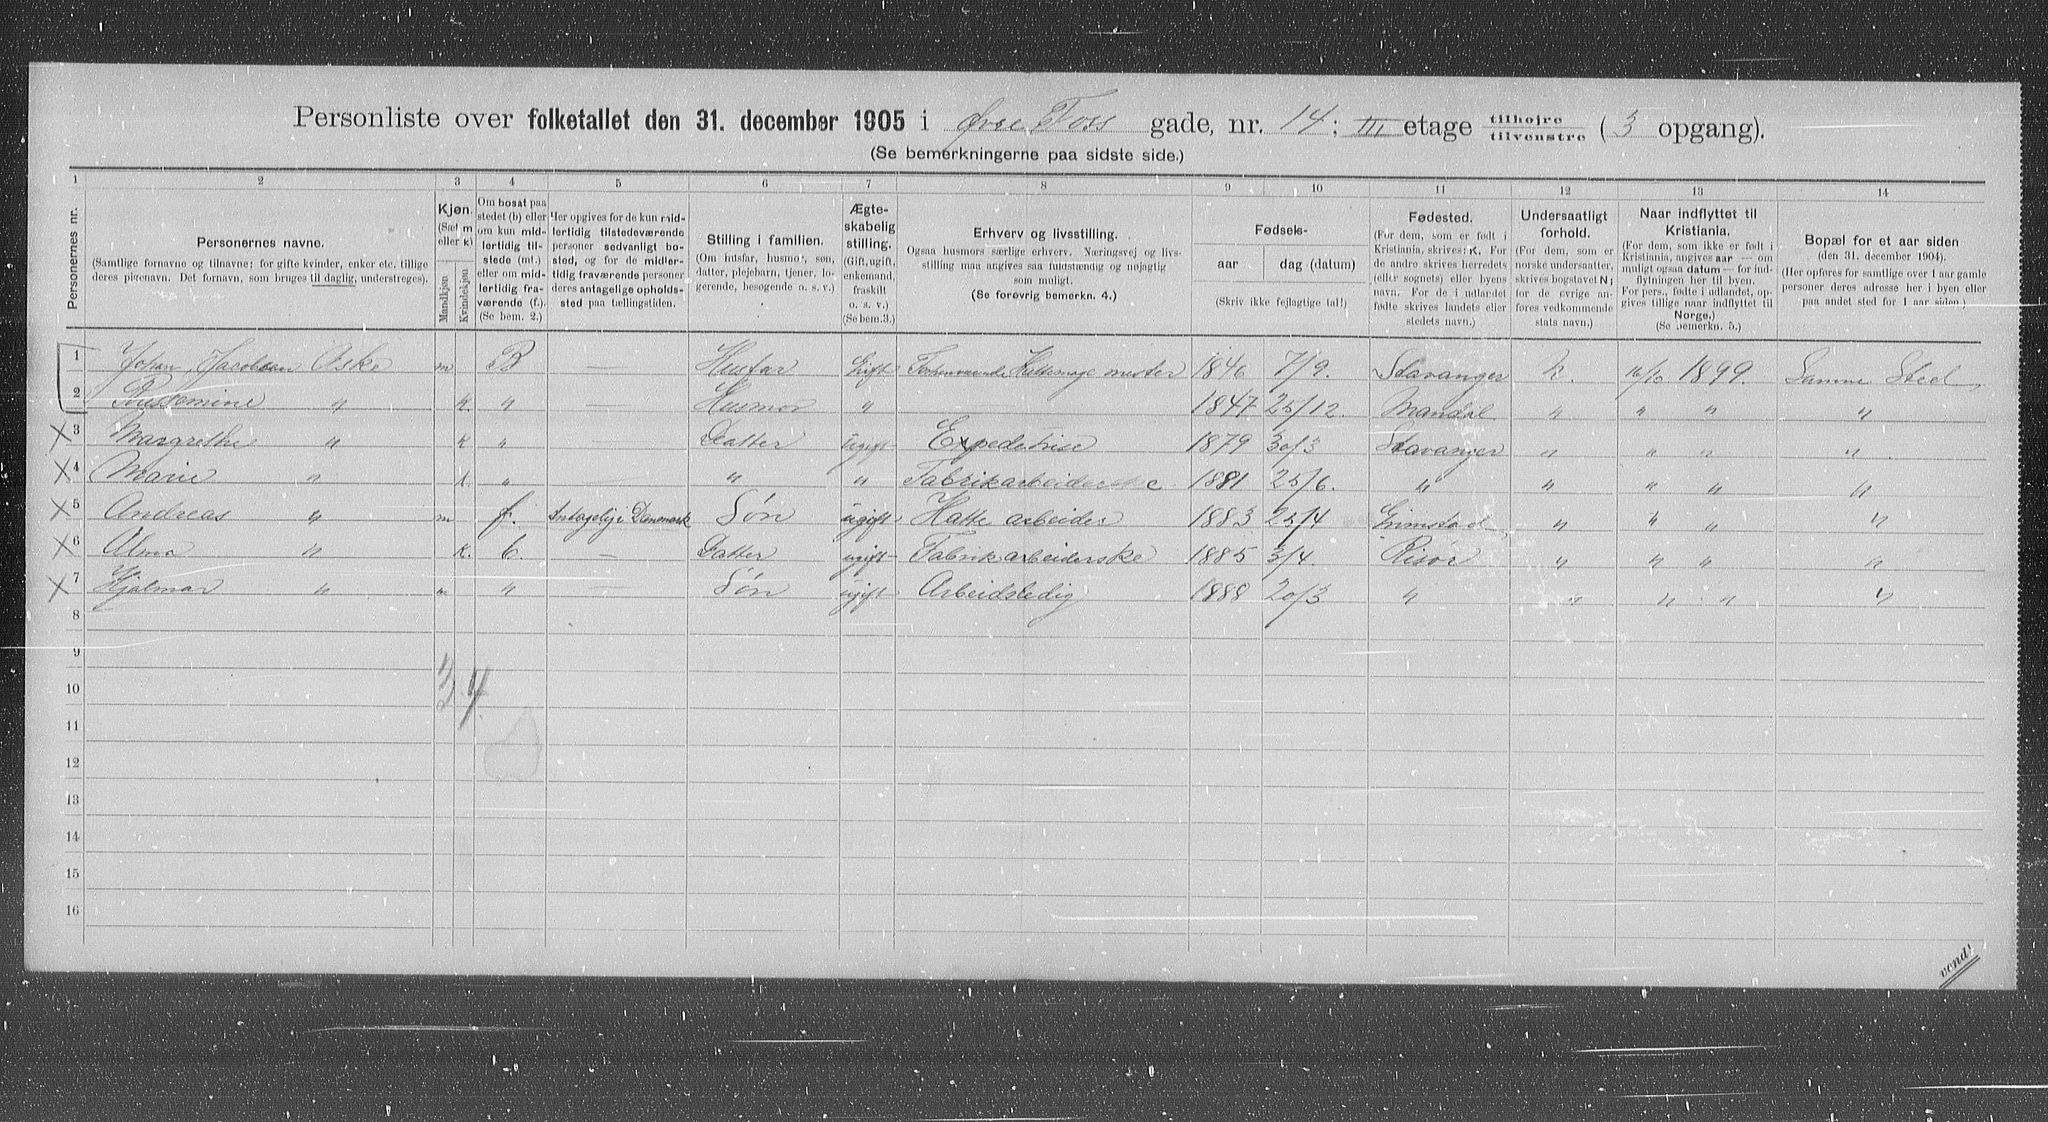 Personliste over folketallet den 31. december 1905 i Øvre Foss gade, nr. 14; III etage tilhøjre tilvenstre (3 opgang).
(Se bemerkningerne paa sidste side.)
1 2 3 4 5 6 7 8 9 10 11 12 13 14
Personernes nr.
Personernes navne.
(Samtlige fornavne og tilnavne; for gifte kvinder, enker etc. tillige deres pigenavn. Det fornavn, som bruges til daglig, understreges).
Kjøn. (Sæt m eller k).
Mandkjøn Kvindekjøn
Om bosat paa stedet (b) eller om kun midlertidig tilstede (mt.) eller om midlertidig fraværende (f.). (Se bem. 2.)
Her opgives for de kun midlertidig tilstedeværende personer sedvanligt bosted, og for de midlertidig fraværende personer deres antagelige opholdssted paa tællingstiden.
Stilling i familien.
(Om husfar, husmor, søn, datter, plejebarn, tjener, logerende, besøgende o. s. v.)
Ægteskabelig stilling.
(Gift, ugift, enkemand, fraskilt o. s. v.) (Se bem. 3.)
Erhverv og livsstilling.
Ogsaa husmors særlige erhverv. Næringsvej og livsstilling maa angives saa fuldstændig og nøjagtig som muligt.
(Se forøvrig bemerkn. 4.)
Fødsels-
aar dag (datum)
(Skriv ikke fejlagtige tal!)
Fødested.
(For dem, som er født i Kristiania, skrives: K. For de andre skrives herredets (eller sognets) eller byens navn. For de i udlandet fødte skrives landets eller stedets navn.)
Undersaatligt forhold.
(For dem, som er norske undersaatter, skrives bogstavet N; for de øvrige anføres vedkommende stats navn.)
Naar indflyttet til Kristiania.
(For dem, som ikke er født i Kristiania, angives aar — om muligt ogsaa datum — for indflytningen her til byen. For pers., fødte i udlandet, opgives tillige naar indflyttet til Norge.) (Se bemerkn. 5.)
Bopæl for et aar siden
(den 31. december 1904).
(Her opføres for samtlige over 1 aar gamle personer deres adresse her i byen eller paa andet sted for 1 aar siden.)
1 Johan Jacobsen Aske m B — Husfar Gift Forhenværende Hattemagermester 1846 7/9. Stavanger N. 1899. Samme Sted
2 " K. " — Husmor " 1847 25/12. Mandal " " " "
X 3 Margrethe " K " — Datter ugift Expeditrise 1879 30/3 Stavanger " " " "
X 4 Marie " K " " " Fabrikarbeiderske 1881 25/6. " " " " "
X 5 Andreas " m f. Antagelig i Danemark Søn ugift Hatte arbeider 1883 25/4 Grimstad " " " "
X 6 Alma " K. b. — Datter ugift Fabrikarbeiderske 1885 3/4. Risør " " " "
X 7 Hjalmar " m " — Søn ugift Arbeidsledig 1888 20/3 " " " " "
8
9
10
11
12
13
14
15
16
3 4
vend!